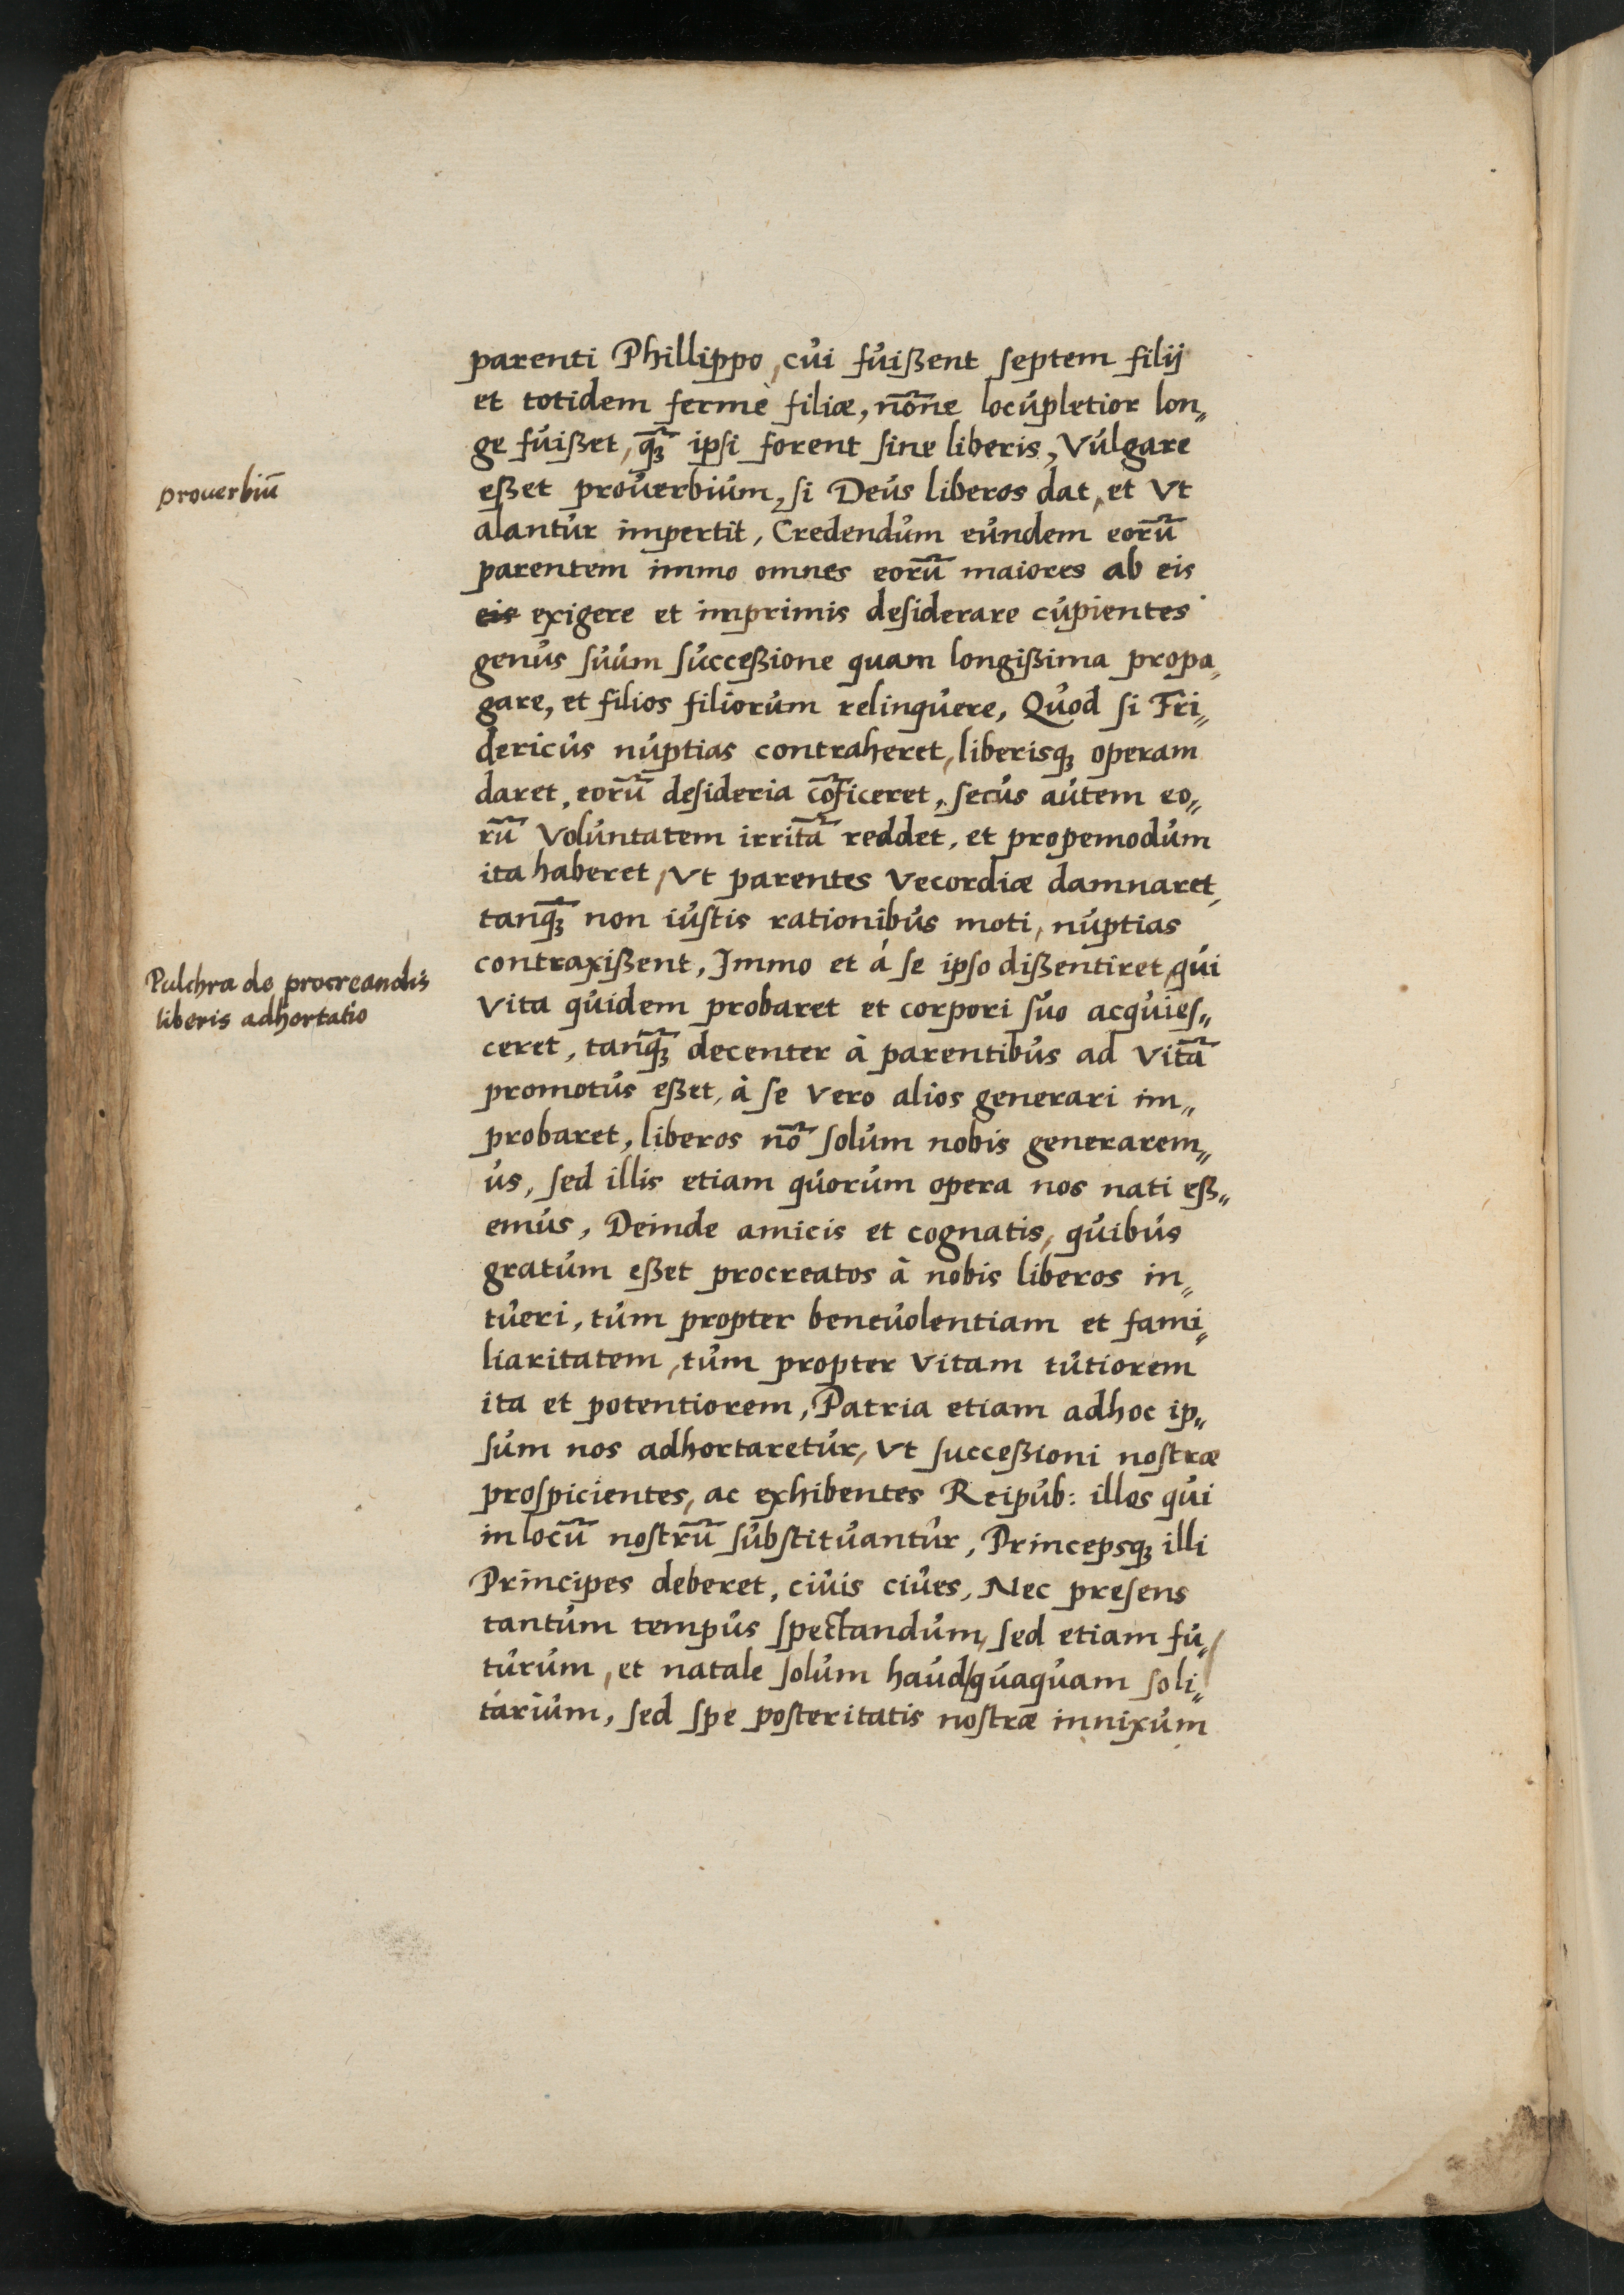 parenti Phillippo, cui fuißent septem filij
et totidem fermè filiæ, nōne locupletior lon„
ge fuißet, qꝫ̄ ipsi forent sine liberis, Vulgare
proverbiū
eßet proverbium, si Deus liberos dat, et Vt
alantur impertit, Credendum eundem eorū
parentem immo omnes eorū maiores ab eis
eis exigere et imprimis desiderare cupientes
genus suum succeßione quam longißima propa„
gare, et filios filiorum relinquere, Quod si Fri„
dericus nuptias contraheret, liberisqꝫ operam
daret, eorū desideria cōficeret, secus autem eo„
rū Voluntatem irritā reddet, et propemodum
ita haberet, Vt parentes Vecordiæ damnaret,
tanqꝫ̄ non iustis rationibus moti, nuptias
contraxißent, Immo et á se ipso dißentiret, qui
Pulchra de procreandis
liberis adhortatio
Vita quidem probaret et corpori suo acquies„
ceret, tanqꝫ̄ decenter à parentibus ad Vitā
promotus eßet, à se Vero alios generari im„
probaret, liberos nō solum nobis generarem„
us, sed illis etiam quorum opera nos nati eß„
emus, Deinde amicis et cognatis, quibus
gratum eßet procreatos à nobis liberos in„
tueri, tum propter benevolentiam et fami„
liaritatem, tum propter Vitam tutiorem
ita et potentiorem, Patria etiam adhoc ip„
sum nos adhortaretur, Vt succeßioni nostræ
prospicientes, ac exhibentes Reipub: illos qui
in locū nostrū substituantur, Princepsqꝫ illi
Principes deberet, civis cives, Nec presens
tantum tempus spectandum, sed etiam fu„
turum, et natale solum haud/quaquam soli„
tarium, sed spe posteritatis nostræ innixum